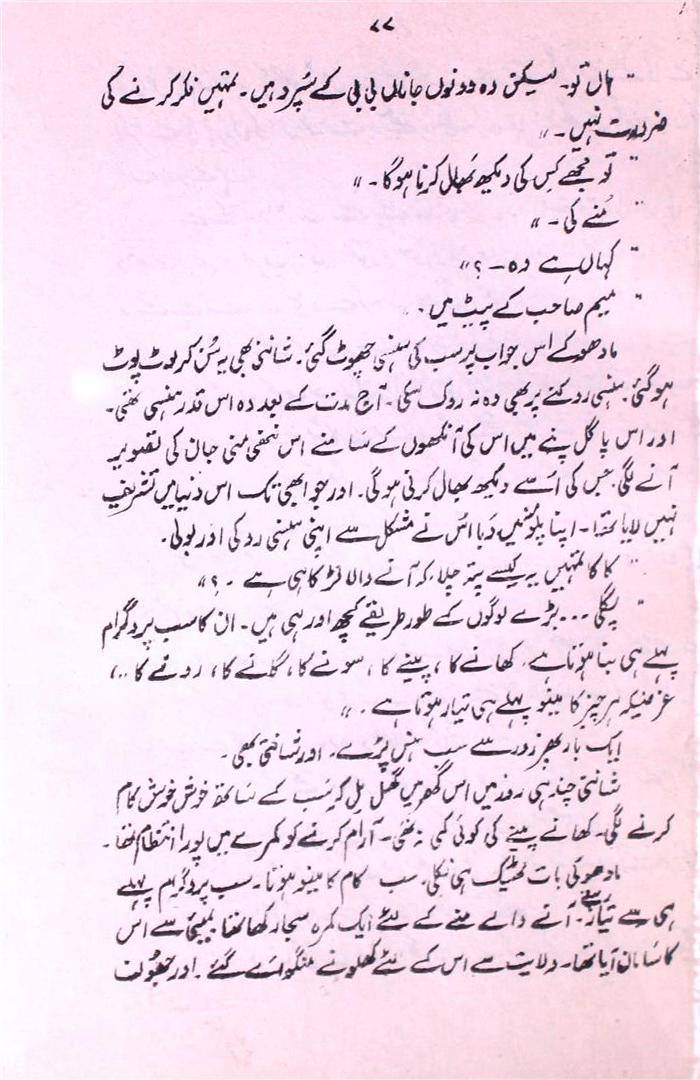 ۷۷
" ہاں تو۔ لیکن وہ دونوں جاناں بی بی کے سپرد ہیں۔ تمہیں فکر کرنے کی
ضرورت نہیں۔ "
" تو مجھے کس کی دیکھ بھال کرنا ہوگا۔ "
" مُنے کی۔ "
" کہاں ہے وہ۔؟ "
" میم صاحب کے پیٹ میں۔
مادھو کے اس جواب پر سب کی ہنسی چھوٹ گئی۔ شانتی بھی یہ سُن کر لوٹ پوٹ
ہو گئی۔ ہنسی روکنے پر بھی وہ نہ روک سکی۔ آج مدت کے بعد وہ اس قدر ہنسی تھی۔
اور اس پاگل پنے میں اس کی آنکھوں کے سامنے اس ننھی منی جان کی تصویر
آنے لگی۔ جس کی اُسے دیکھ بھال کرنی ہوگی۔ اور جو ابھی تک اس دنیا میں تشریف
نہیں لایا تھا۔ اپنا پلو منہ میں دبا اُس نے مشکل سے اپنی ہنسی روکی اور بولی۔
" کاکا تمہیں یہ کیسے پتہ چلا، کہ آنے والا لڑکا ہی ہے ۔؟ "
" پگلی ... بڑے لوگوں کے طور طریقے کچھ اور ہی ہیں۔ ان کا سب پروگرام
پہلے ہی بنا ہوتا ہے، کھانے کا، پینے کا، سونے کا، گانے کا، رونے کا ..،
غرضیکہ ہر چیز کا مینو پہلے ہی تیار ہوتا ہے۔ "
ایک بار پھر زور سے سب ہنس پڑے۔ اور شانتی بھی۔
شانتی چند ہی روز میں اس گھر میں گھل مِل کر سب کے ساتھ خوش خوش کام
کرنے لگی۔ کھانے پینے کی کوئی کمی نہ تھی۔ آرام کرنے کو کمرے میں پورا انتظام تھا۔
مادھو کی بات ٹھیک ہی نکلی۔ سب کام کا مینو ہوتا۔ سب پروگرام پہلے
ہی سے تیار رہتے۔ آنے والے منے کے لئے ایک کمرہ سجا رکھا تھا۔ بمبئی سے اس
کا سامان آیا تھا۔ ولایت سے اس کے لئے کھلونے منگوائے گئے۔ اور